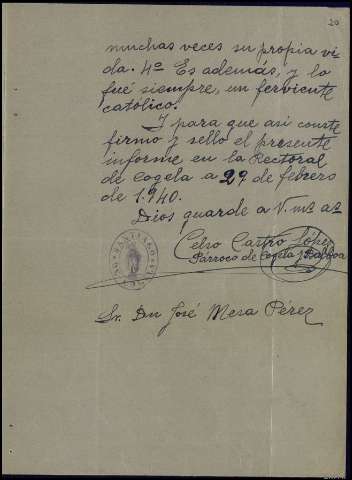 20
muchas veces su propia vi-
da. 4º Es además, y lo
fué siempre, un ferviente
católico.
Y para que asi conste
firmo y sello el presente
informe en la Rectoral
de Cogela a 29 de febrero
de 1.940.
Dios guarde a V. mˢ aˢ
Celso Castro López
Párroco de Cogela y Balboa
SANTIAGO
Sr. Dn José Mesa Pérez